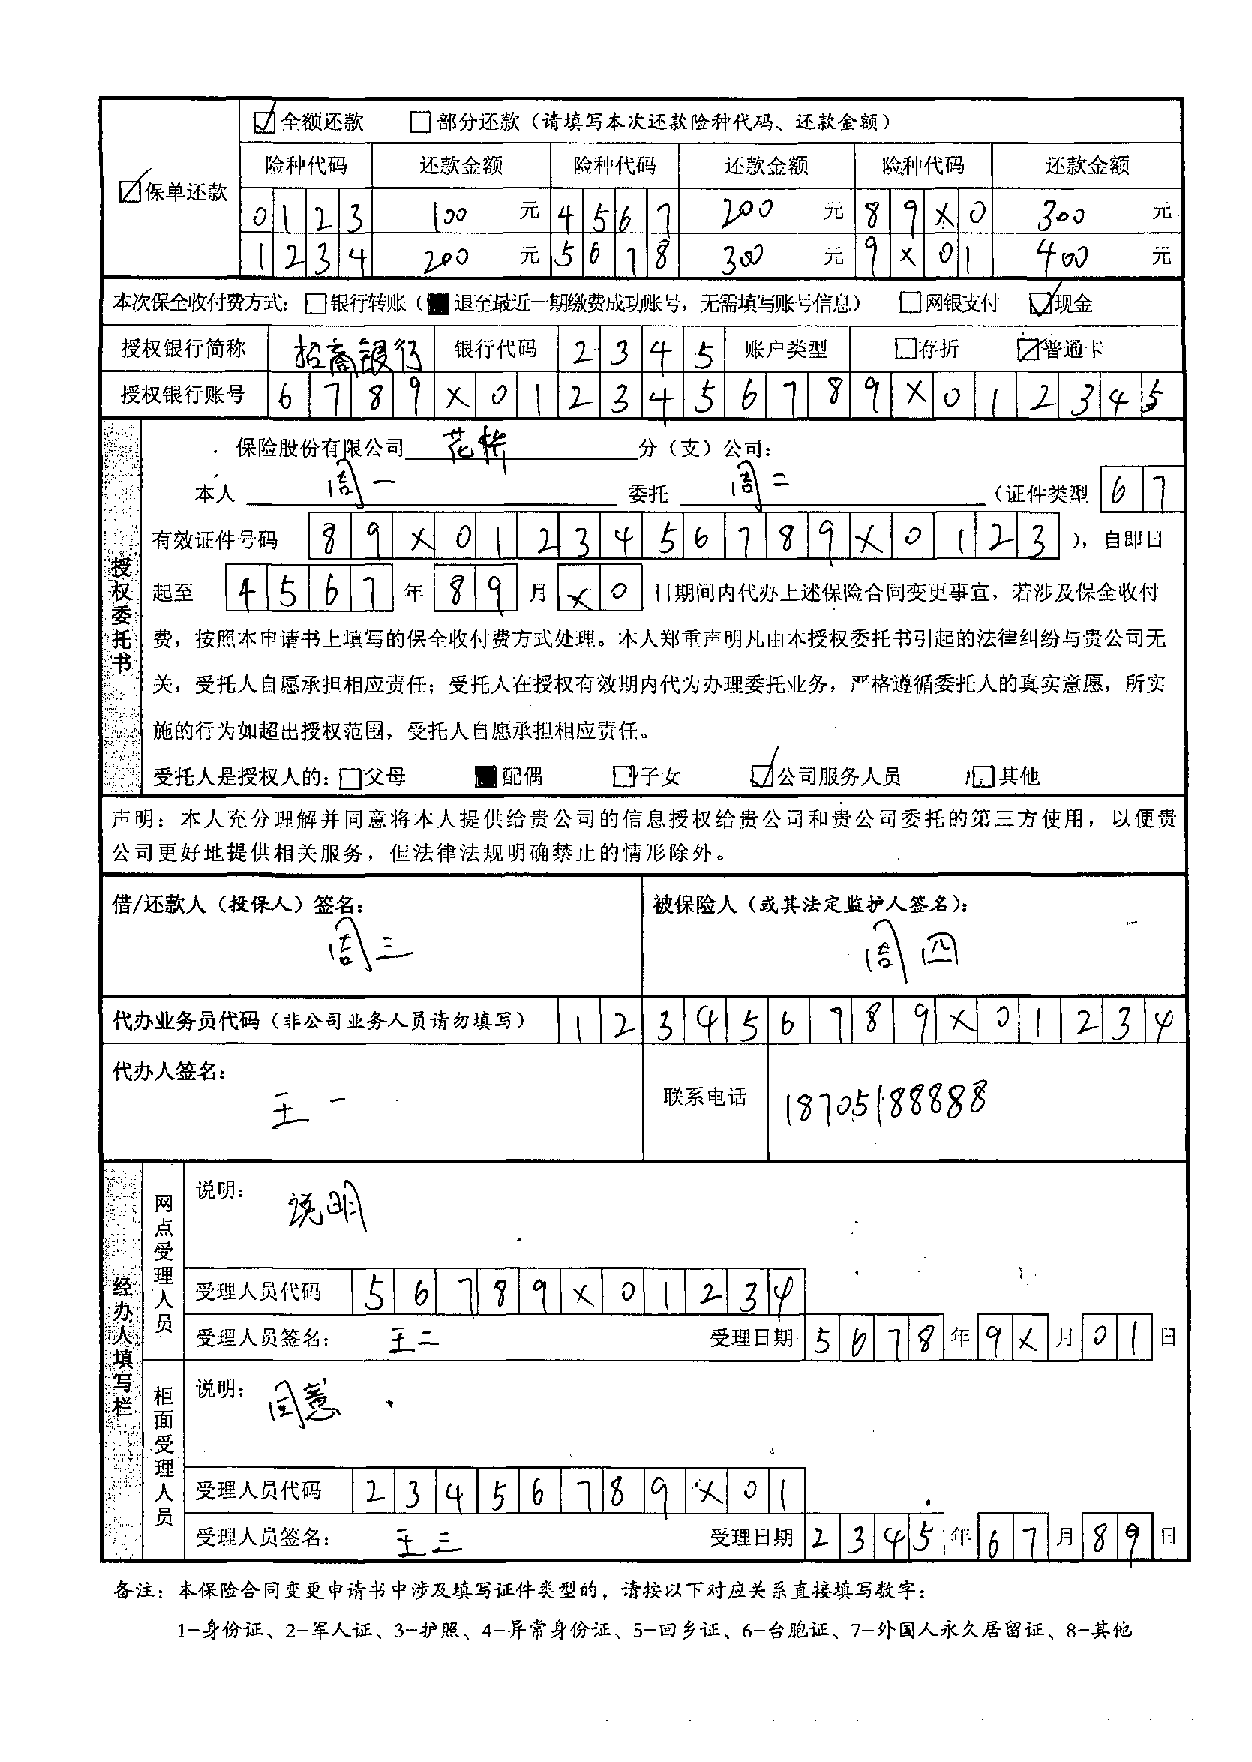 ☑保单还款
☑全额还款 □部分还款（请填写本次还款险种代码、还款金额）
险种代码 还款金额 险种代码 还款金额 险种代码 还款金额
0123 100 元 4567 200 元 89X0 300 元
1234 200 元 5678 300 元 9X01 400 元
本次保全收付费方式：□银行转账（■退至最近一期缴费成功账号，无需填写账号信息） □网银支付 ☑现金
授权银行简称 招商银行 银行代码 2345 账户类型 □存折 ☑普通卡
授权银行账号 6789X0123456789X012345
授权委托书
保险股份有限公司 分（支）公司：
本人 周一 委托 周二 （证件类型 67
有效证件号码 89X0123456789X0123 ），自即日
起至 4567 年 89 月 X0 日期间内代办上述保险合同变更事宜，若涉及保全收付
费，按照本申请书上填写的保全收付费方式处理。本人郑重声明凡由本授权委托书引起的法律纠纷与贵公司无
关，受托人自愿承担相应责任；受托人在授权有效期内代为办理委托业务，严格遵循委托人的真实意愿，所实
施的行为如超出授权范围，受托人自愿承担相应责任。
受托人是授权人的：□父母 ■配偶 □子女 ☑公司服务人员 □其他
声明：本人充分理解并同意将本人提供给贵公司的信息授权给贵公司和贵公司委托的第三方使用，以便贵
公司更好地提供相关服务，但法律法规明确禁止的情形除外。
借/还款人（投保人）签名： 被保险人（或其法定监护人签名）：
周三 周四
代办业务员代码（非公司业务人员请勿填写） 123456789X01234
代办人签名：
王一 联系电话 18705188888
经办人填写栏
网点受理人员
说明： 说明
受理人员代码 56789X01234
受理人员签名： 王二 受理日期 5678 年 9X 月 01 日
柜面受理人员
说明： 同意
受理人员代码 23456789X01
受理人员签名： 王三 受理日期 2345 年 67 月 89 日
备注：本保险合同变更申请书中涉及填写证件类型的，请按以下对应关系直接填写数字：
1-身份证、2-军人证、3-护照、4-异常身份证、5-回乡证、6-台胞证、7-外国人永久居留证、8-其他